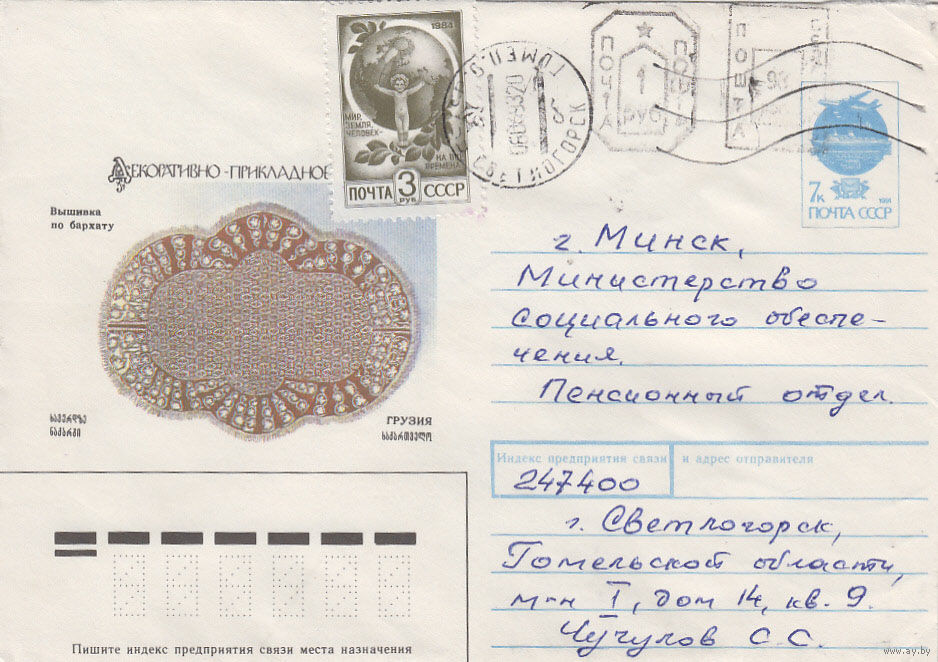 1984
МИР,
ЗЕМЛЯ,
ЧЕЛОВЕК-
НА ВСЕ
ВРЕМЕНА
ПОЧТА 3 СССР
РУБ
СВЕТЛОГОРСК
ПОЧТА
1
РУБ
ПОЧТА
ПОШТА
7к
1991
ПОЧТА СССР
ДЕКОРАТИВНО-ПРИКЛАДНОЕ
Вышивка
по бархату
ГРУЗИЯ
ᲡᲐᲥᲐᲠᲗᲕᲔᲚᲝ
г. Минск,
Министерство
социального обеспе-
чения.
Пенсионный отдел.
Индекс предприятия связи и адрес отправителя
247400
г. Светлогорск,
Гомельской области,
м-н I, дом 14, кв. 9.
Чучулов С. С.
Пишите индекс предприятия связи места назначения
www.ay.by